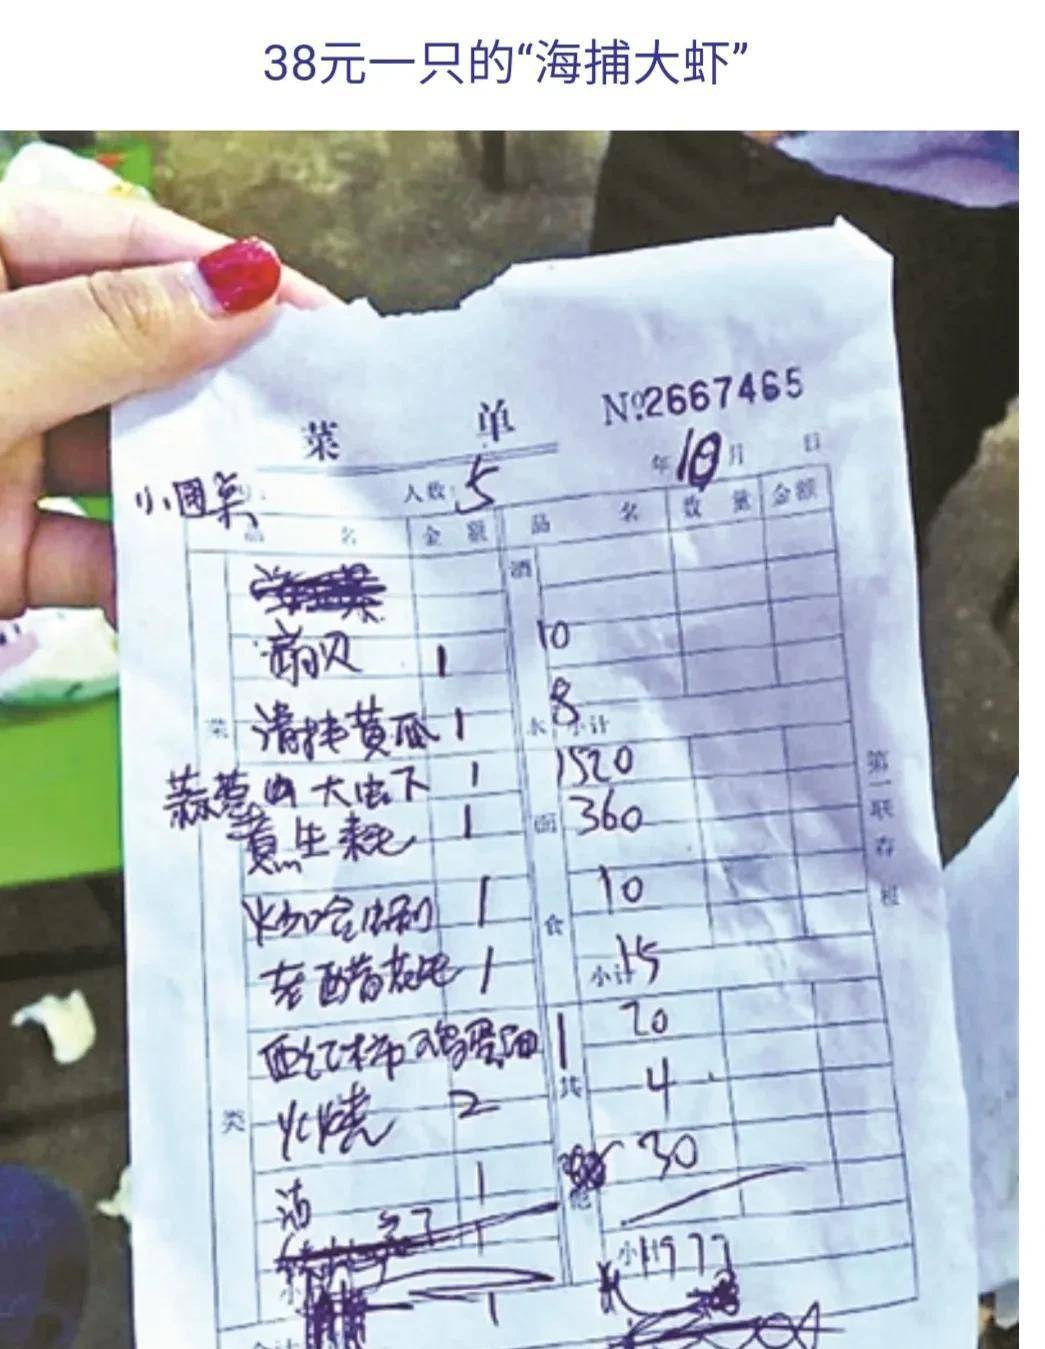 38元一只的“海捕大虾”
菜 单 №2667465
人数: 5 年 10 月 日
小圆桌
品 名 金 额 品 名 数 量 金 额
酒
扇贝 1 10
清拌黄瓜 1 8
菜 水 小计
大虫下 1 1520
生 1 面 360
第一联存根
1 食 10
老醋 1 小计 15
西红柿鸡蛋面 1 20
类 火烧 2 其 4
酒 1 他 30
小计 1977